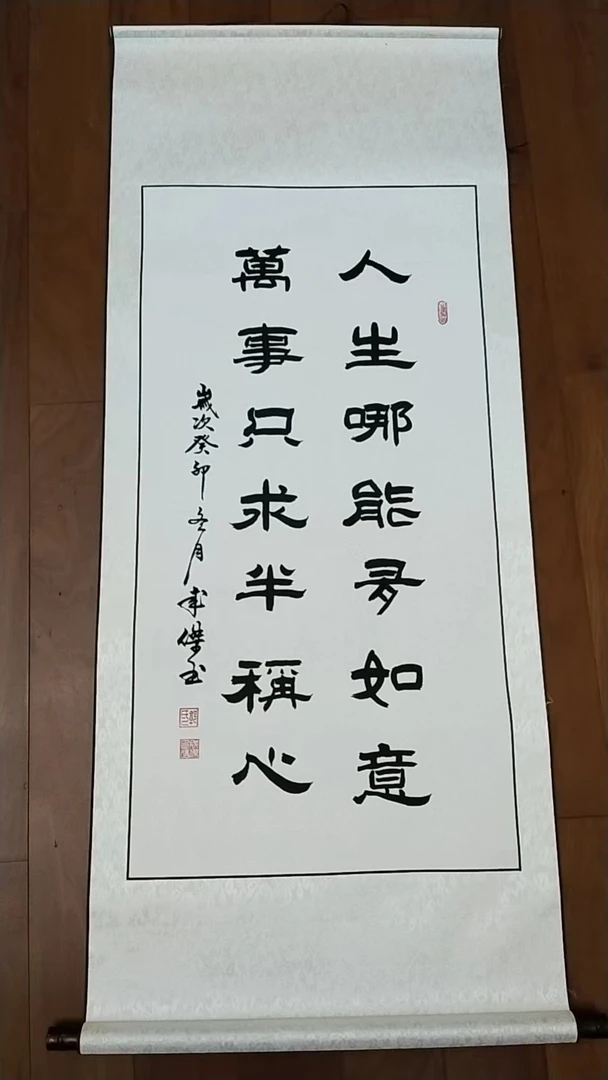 人生哪能多如意
萬事只求半稱心
歲次癸卯冬月傑